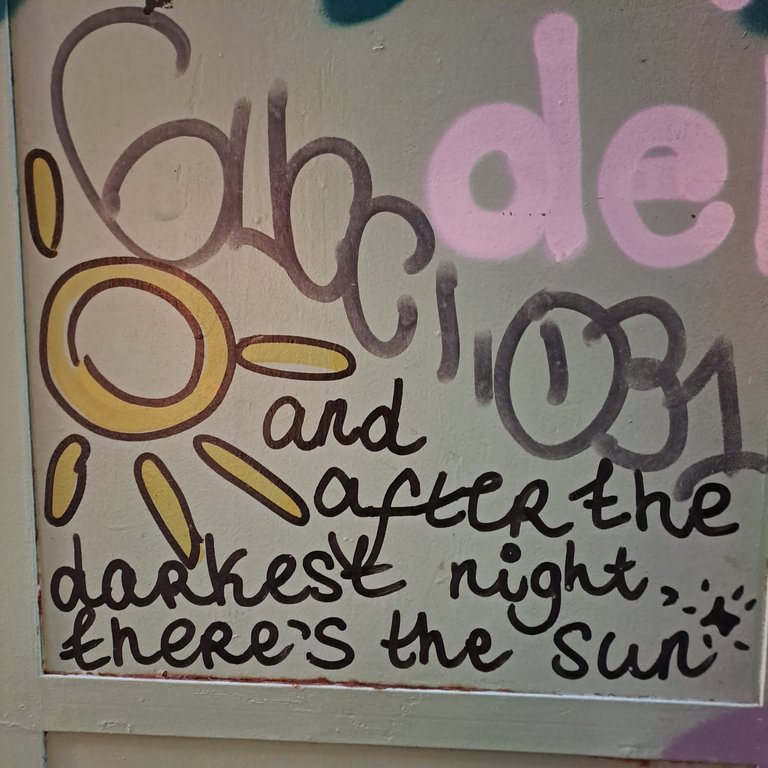 de
and
after the
darkest night,
there's the sun